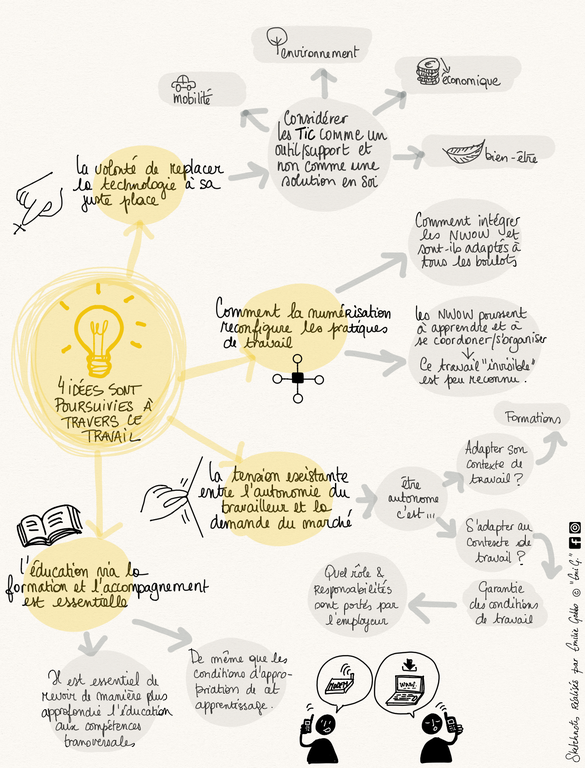 environnement
économique
mobilité
bien-être
Considérer
les TIC comme un
outil/support et
non comme une
solution en soi
la volonté de replacer
la technologie à sa
juste place
Comment intégrer
les NWOW et
sont-ils adaptés à
tous les boulots
4 IDÉES SONT
POURSUIVIES À
TRAVERS CE
TRAVAIL
Comment la numérisation
reconfigure les pratiques
de travail
les NWOW poussent
à apprendre et à
se coordoner/s'organiser
Ce travail "invisible"
est peu reconnu.
Formations
Adapter son
contexte de
travail ?
La tension existante
entre l'autonomie du
travailleur et la
demande du marché
être
autonome
c'est...
S'adapter au
contexte de
travail ?
l'éducation via la
formation et l'accompagnement
est essentielle
Quel rôle &
Responsabilités
sont portés par
l'employeur
Garantie
des conditions
de travail
Il est essentiel de
revoir de manière plus
approfondie l'éducation
aux compétences
transversales
De même que les
conditions d'appro-
priation de cet
apprentissage.
WWW!
Sketchnote réalisés par Emilie Gobbo © "Emi G."